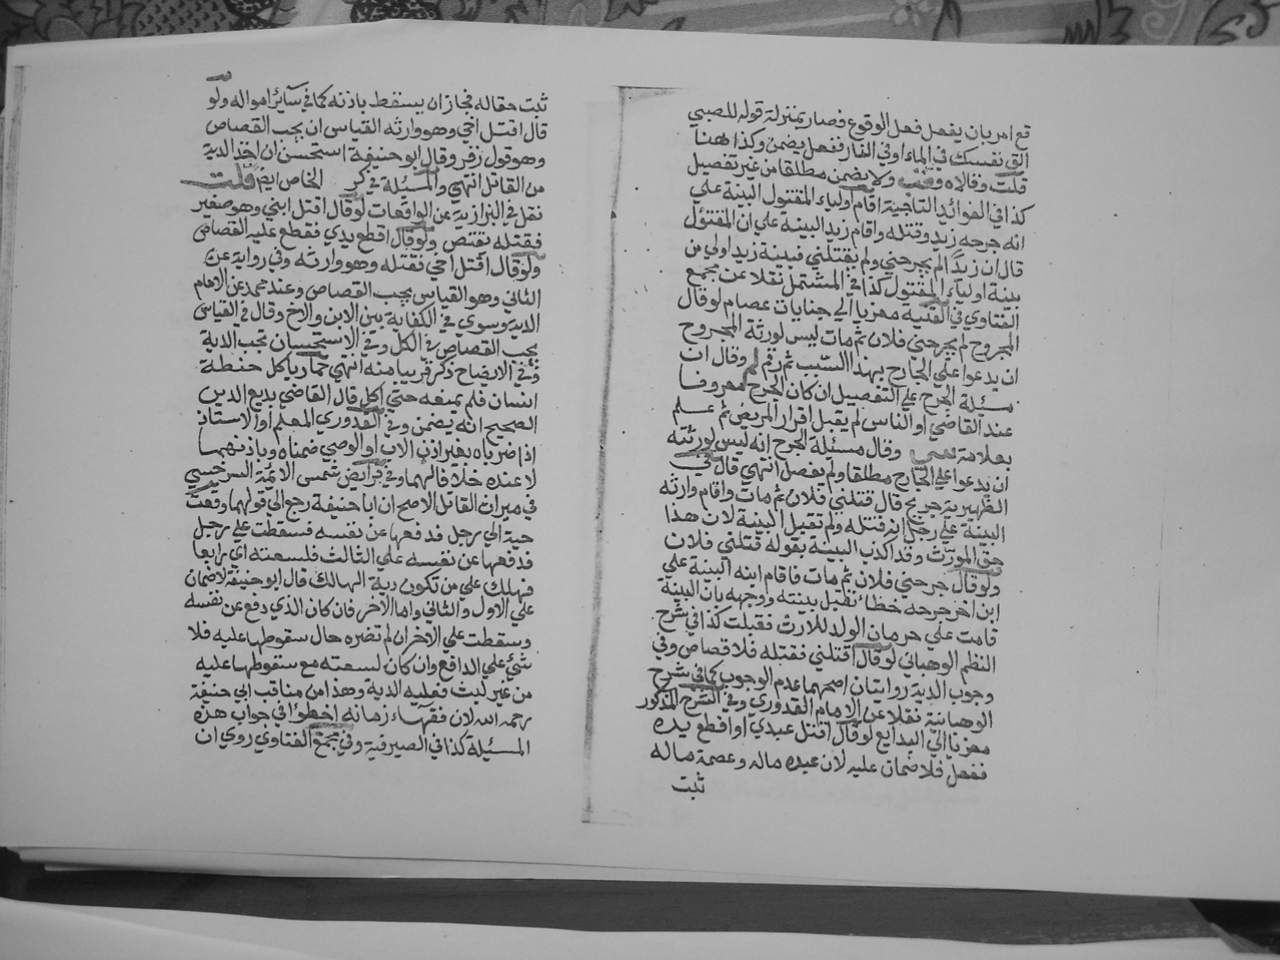 قع امر بان يفعل فعل الوقوع فصار بمنزلة قوله للصبي
الق نفسك في الماء او في النار ففعل يضمن وكذا ههنا
قلت وفالاه ولا يضمن مطلقا من غير تفصيل
كذا في الفوائد التاجية اقام اولياء المقتول البينة علي
انه جرحه زيد وقتله واقام زيد البينة علي ان المقتول
قال ان زيدا لم يجرحني ولم يقتلني فبينة زيد اولي من
بينة اولياء المقتول كذا في المشتمل نقلا عن مجمع
الفتاوي في القنية معزيا الي جنايات عصام لو قال
المجروح لم يجرحني فلان ثم مات ليس لورثة المجروح
ان يدعوا علي الجارح بهذا السبب ثم رقم وقال ان
مسئلة الجرح علي التفصيل ان كان الجرح معروفا
عند القاضي او الناس لم يقبل اقرار المريض ثم علم
بعلامة وقال مسئلة الجرح انه ليس لورثته
ان يدعوا علي الجارح مطلقا ولم يفصل انتهي قال في
الظهيرية جريح قال قتلني فلان ثم مات واقام وارثه
البينة علي رجل انه قتله ولم تقبل البينة لان هذا
حق المورث وقد اكذب البينة بقوله قتلني فلان
ولو قال جرحني فلان ثم مات فاقام ابنه البينة علي
ابن اخر جرحه خطاء تقبل بينته ووجهه بان البينة
قامت علي حرمان الولد للارث فقبلت كذا في شرح
النظم الوهباني لو قال اقتلني فقتله فلا قصاص وفي
وجوب الدية روايتان اصحهما عدم الوجوب كما في شرح
الوهبانية نقلا عن الامام القدوري وفي الشرح المذكور
معزيا الي البدايع لو قال اقتل عبدي او اقطع يده
ففعل فلا ضمان عليه لان عبده ماله وعصمة ماله
ثبت
ثبت حقا له فجاز ان يسقط باذنه كما في سائر امواله ولو
قال اقتل اخي وهو وارثه القياس ان يجب القصاص
وهو قول زفر وقال ابو حنيفة استحسن ان اخذ الدية
من القاتل انتهي والمسئلة في الخاص ايضا قلت
نقل في البزازية عن الواقعات لو قال اقتل ابني وهو صغير
فقتله يقتص ولو قال اقطع يدي فقطع عليه القصاص
ولو قال اقتل اخي فقتله وهو وارثه وفي رواية عن
الثاني وهو القياس يجب القصاص وعند محمد عن الامام
الدية وسوي في الكفاية بين الابن والاخ وقال في القياس
يجب القصاص في الكل وفي الاستحسان تجب الدية
وفي الايضاح ذكر قريبا منه انتهي حمار ياكل حنطة
انسان فلم يمنعه حتي اكل قال القاضي بديع الدين
الصحيح انه يضمن وفي القدوري المعلم او الاستاذ
اذا ضرباه بغير اذن الاب او الوصي ضمناه وباذنهما
لا عنده خلافا لهما وفي فرايض شمس الائمة السرخسي
في ميراث القاتل الاصح ان ابا حنيفة رجع الي قولهما وقعت
حية الي رجل فدفعها عن نفسه فسقطت علي رجل
فدفعها عن نفسه علي الثالث فلسعته اي رابعا
فهلك علي من تكون دية الهالك قال ابو حنيفة لا ضمان
علي الاول والثاني واما الاخر فان كان الذي دفع عن نفسه
وسقطت علي الاخر ان لم تضره حال سقوطها عليه فلا
شئ علي الدافع وان كان لسعته مع سقوطها عليه
من غير لبث فعليه الدية وهذا من مناقب ابي حنيفة
رحمه الله لان فقهاء زمانه اخطؤا في جواب هذه
المسئلة كذا في الصيرفية وفي مجمع الفتاوي روي ان